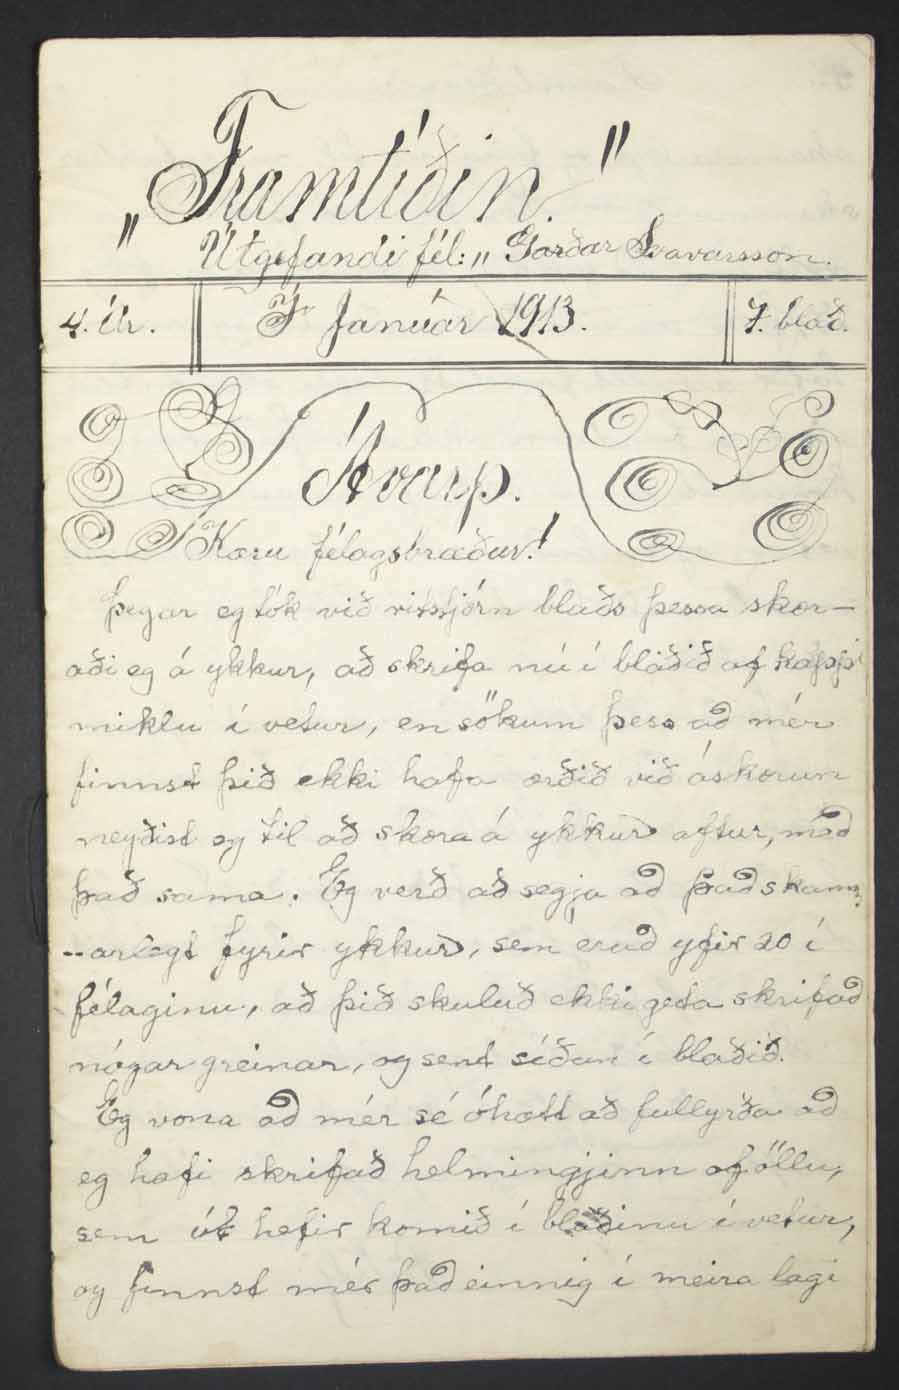 „Framtíðin."
Útgefandi fél: „Garðar Svavarsson.
4. Ár. Í Janúar 1913. 7. blað.
Ávarp.
Kæru félagsbræður!
Þegar eg tók við ritstjórn blaðs þessa skor-
aði eg á ykkur, að skrifa nú í blaðið af kappi
miklu í vetur, en sökum þess að mér
finnst þið ekki hafa orðið við áskorun
neyðist eg til að skora á ykkur aftur, með
það sama. Eg verð að segja að það skam-
-arlegt fyrir ykkur, sem eruð yfir 20 í
félaginu, að þið skuluð ekki geta skrifað
nógar greinar, og sent síðan í blaðið.
Eg vona að mér sé óhætt að fullyrða að
eg hafi skrifað helmingjinn af öllu,
sem út hefir komið í blaðinu í vetur,
og finnst mér það einnig í meira lagi